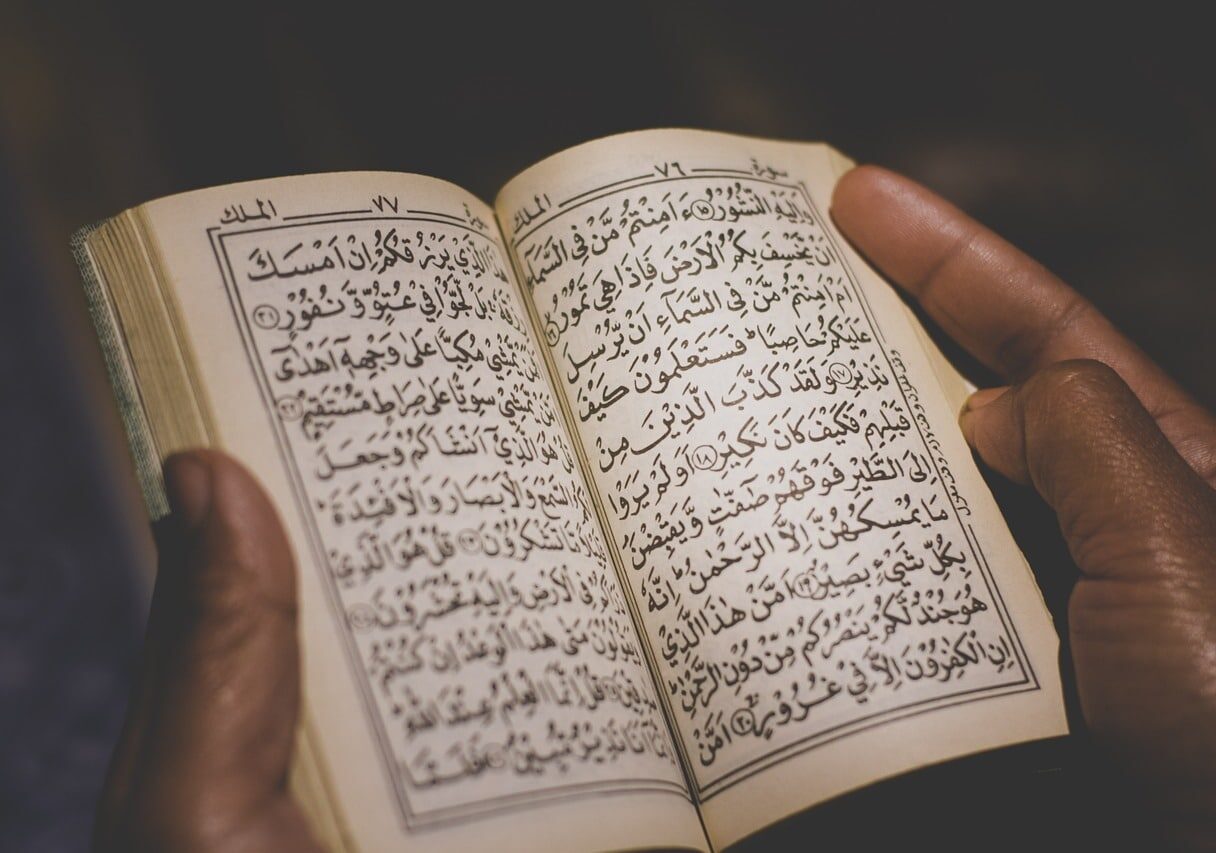 سورة ٧٦ الملك
وَاِلَيْهِ النُّشُوْرُ ١٥ ءَاَمِنْتُمْ مَّنْ فِي السَّمَآءِ
اَنْ يَّخْسِفَ بِكُمُ الْاَرْضَ فَاِذَا هِيَ تَمُوْرُ ١٦
اَمْ اَمِنْتُمْ مَّنْ فِي السَّمَآءِ اَنْ يُّرْسِلَ
عَلَيْكُمْ حَاصِبًا ؕ فَسَتَعْلَمُوْنَ كَيْفَ
نَذِيْرِ ١٧ وَلَقَدْ كَذَّبَ الَّذِيْنَ مِنْ
قَبْلِهِمْ فَكَيْفَ كَانَ نَكِيْرِ ١٨ اَوَلَمْ يَرَوْا
اِلَى الطَّيْرِ فَوْقَهُمْ صٰٓفّٰتٍ وَّيَقْبِضْنَ
مَا يُمْسِكُهُنَّ اِلَّا الرَّحْمٰنُ ؕ اِنَّهٗ
بِكُلِّ شَيْءٍۭ بَصِيْرٌ ١٩ اَمَّنْ هٰذَا الَّذِيْ
هُوَ جُنْدٌ لَّكُمْ يَنْصُرُكُمْ مِّنْ دُوْنِ الرَّحْمٰنِ ؕ
اِنِ الْكٰفِرُوْنَ اِلَّا فِيْ غُرُوْرٍ ٢٠ اَمَّنْ
سورة ٧٧ الملك
هٰذَا الَّذِيْ يَرْزُقُكُمْ اِنْ اَمْسَكَ
رِزْقَهٗ ۚ بَلْ لَّجُّوْا فِيْ عُتُوٍّ وَّنُفُوْرٍ ٢١
يَّمْشِيْ مُكِبًّا عَلٰى وَجْهِهٖٓ اَهْدٰٓى
اَمَّنْ يَّمْشِيْ سَوِيًّا عَلٰى صِرَاطٍ مُّسْتَقِيْمٍ ٢٢
قُلْ هُوَ الَّذِيْٓ اَنْشَاَكُمْ وَجَعَلَ
لَكُمُ السَّمْعَ وَالْاَبْصَارَ وَالْاَفْئِدَةَ ؕ
قَلِيْلًا مَّا تَشْكُرُوْنَ ٢٣ قُلْ هُوَ الَّذِيْ
ذَرَاَكُمْ فِي الْاَرْضِ وَاِلَيْهِ تُحْشَرُوْنَ ٢٤
وَيَقُوْلُوْنَ مَتٰى هٰذَا الْوَعْدُ اِنْ كُنْتُمْ
صٰدِقِيْنَ ٢٥ قُلْ اِنَّمَا الْعِلْمُ عِنْدَ اللّٰهِ
وَاِنَّمَآ اَنَا نَذِيْرٌ مُّبِيْنٌ ٢٦ فَلَمَّا